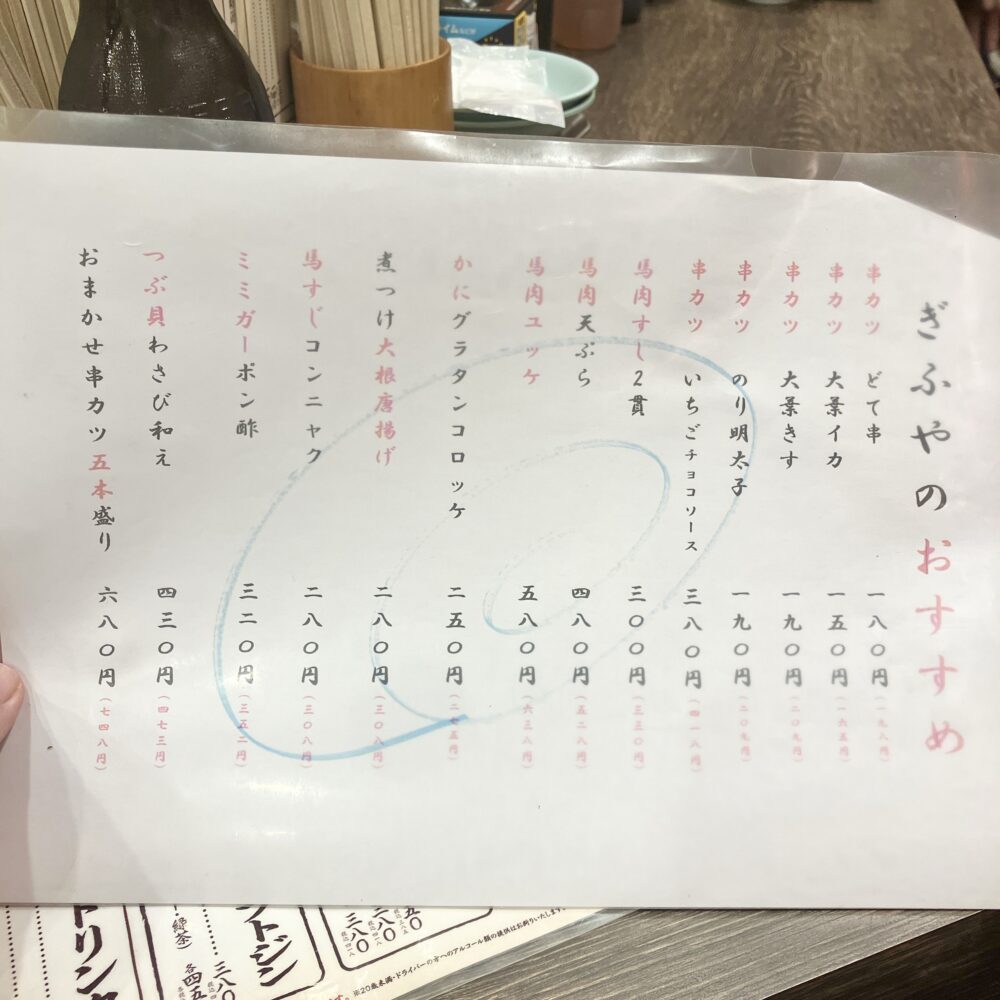 ぎふやのおすすめ
串カツ どて串 一八〇円（一九八円）
串カツ 大葉イカ 一五〇円（一六五円）
串カツ 大葉きす 一九〇円（二〇九円）
串カツ のり明太子 一九〇円（二〇九円）
串カツ いちごチョコソース 三八〇円（四一八円）
馬肉すし2貫 三〇〇円（三三〇円）
馬肉天ぷら 四八〇円（五二八円）
馬肉ユッケ 五八〇円（六三八円）
かにグラタンコロッケ 二五〇円（二七五円）
煮つけ大根唐揚げ 二八〇円（三〇八円）
馬すじコンニャク 二八〇円（三〇八円）
ミミガーポン酢 三二〇円（三五二円）
つぶ貝わさび和え 四三〇円（四七三円）
おまかせ串カツ五本盛り 六八〇円（七四八円）
※20歳未満・ドライバーの方へのアルコール類の提供はお断りいたします。
三八〇
二八〇
トジン
緑茶）
各四五
三八〇
トリンク